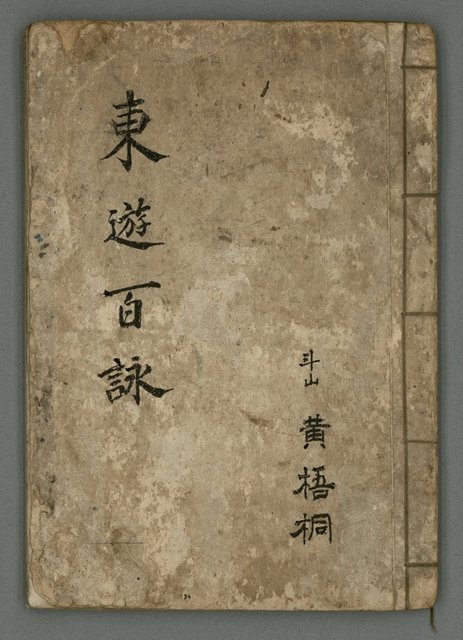 斗山 黄梧桐
東遊百詠